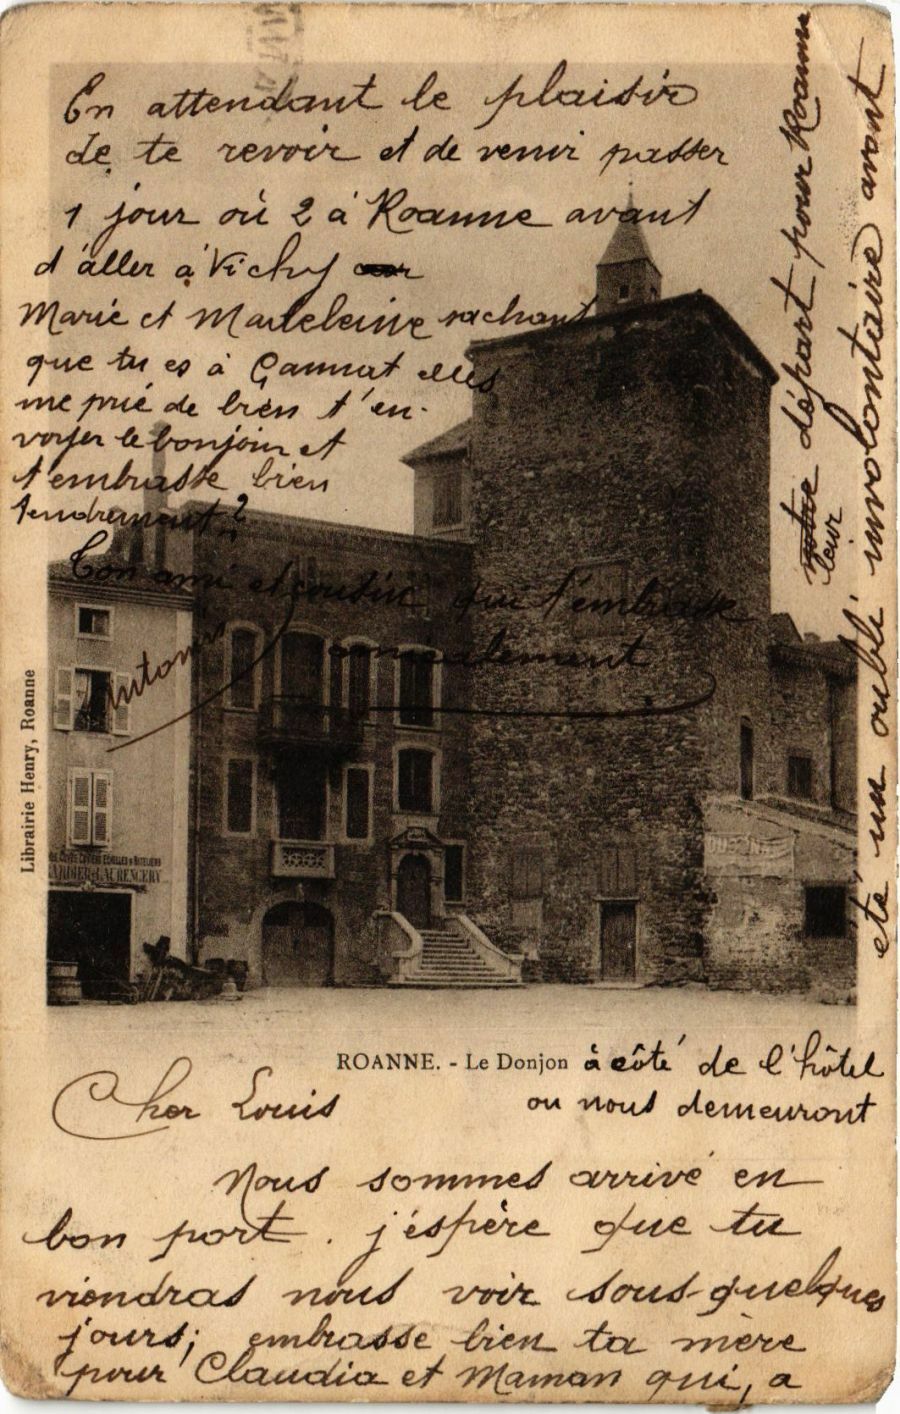 ROANNE. - Le Donjon à côté de l'hôtel
ou nous demeuront
Cher Louis
Nous sommes arrivé en
bon port. j'éspère que tu
viendras nous voir sous-quelques
jours; embrasse bien ta mère
pour Claudia et Maman qui, a
eté un oubli involontaire avant
leur départ pour Roanne
En attendant le plaisir
de te revoir et de venir passer
1 jour où 2 à Roanne avant
d'âller à Vichy
Marie et Madeleine sachant
que tu es à Gannat elles
me prié de bien t'en-
voyer le bonjoir et
t'embrasse bien
tendrement
Ton ami et cousin qui t'embrasse
amicalement
Antonin
Librairie Henry, Roanne